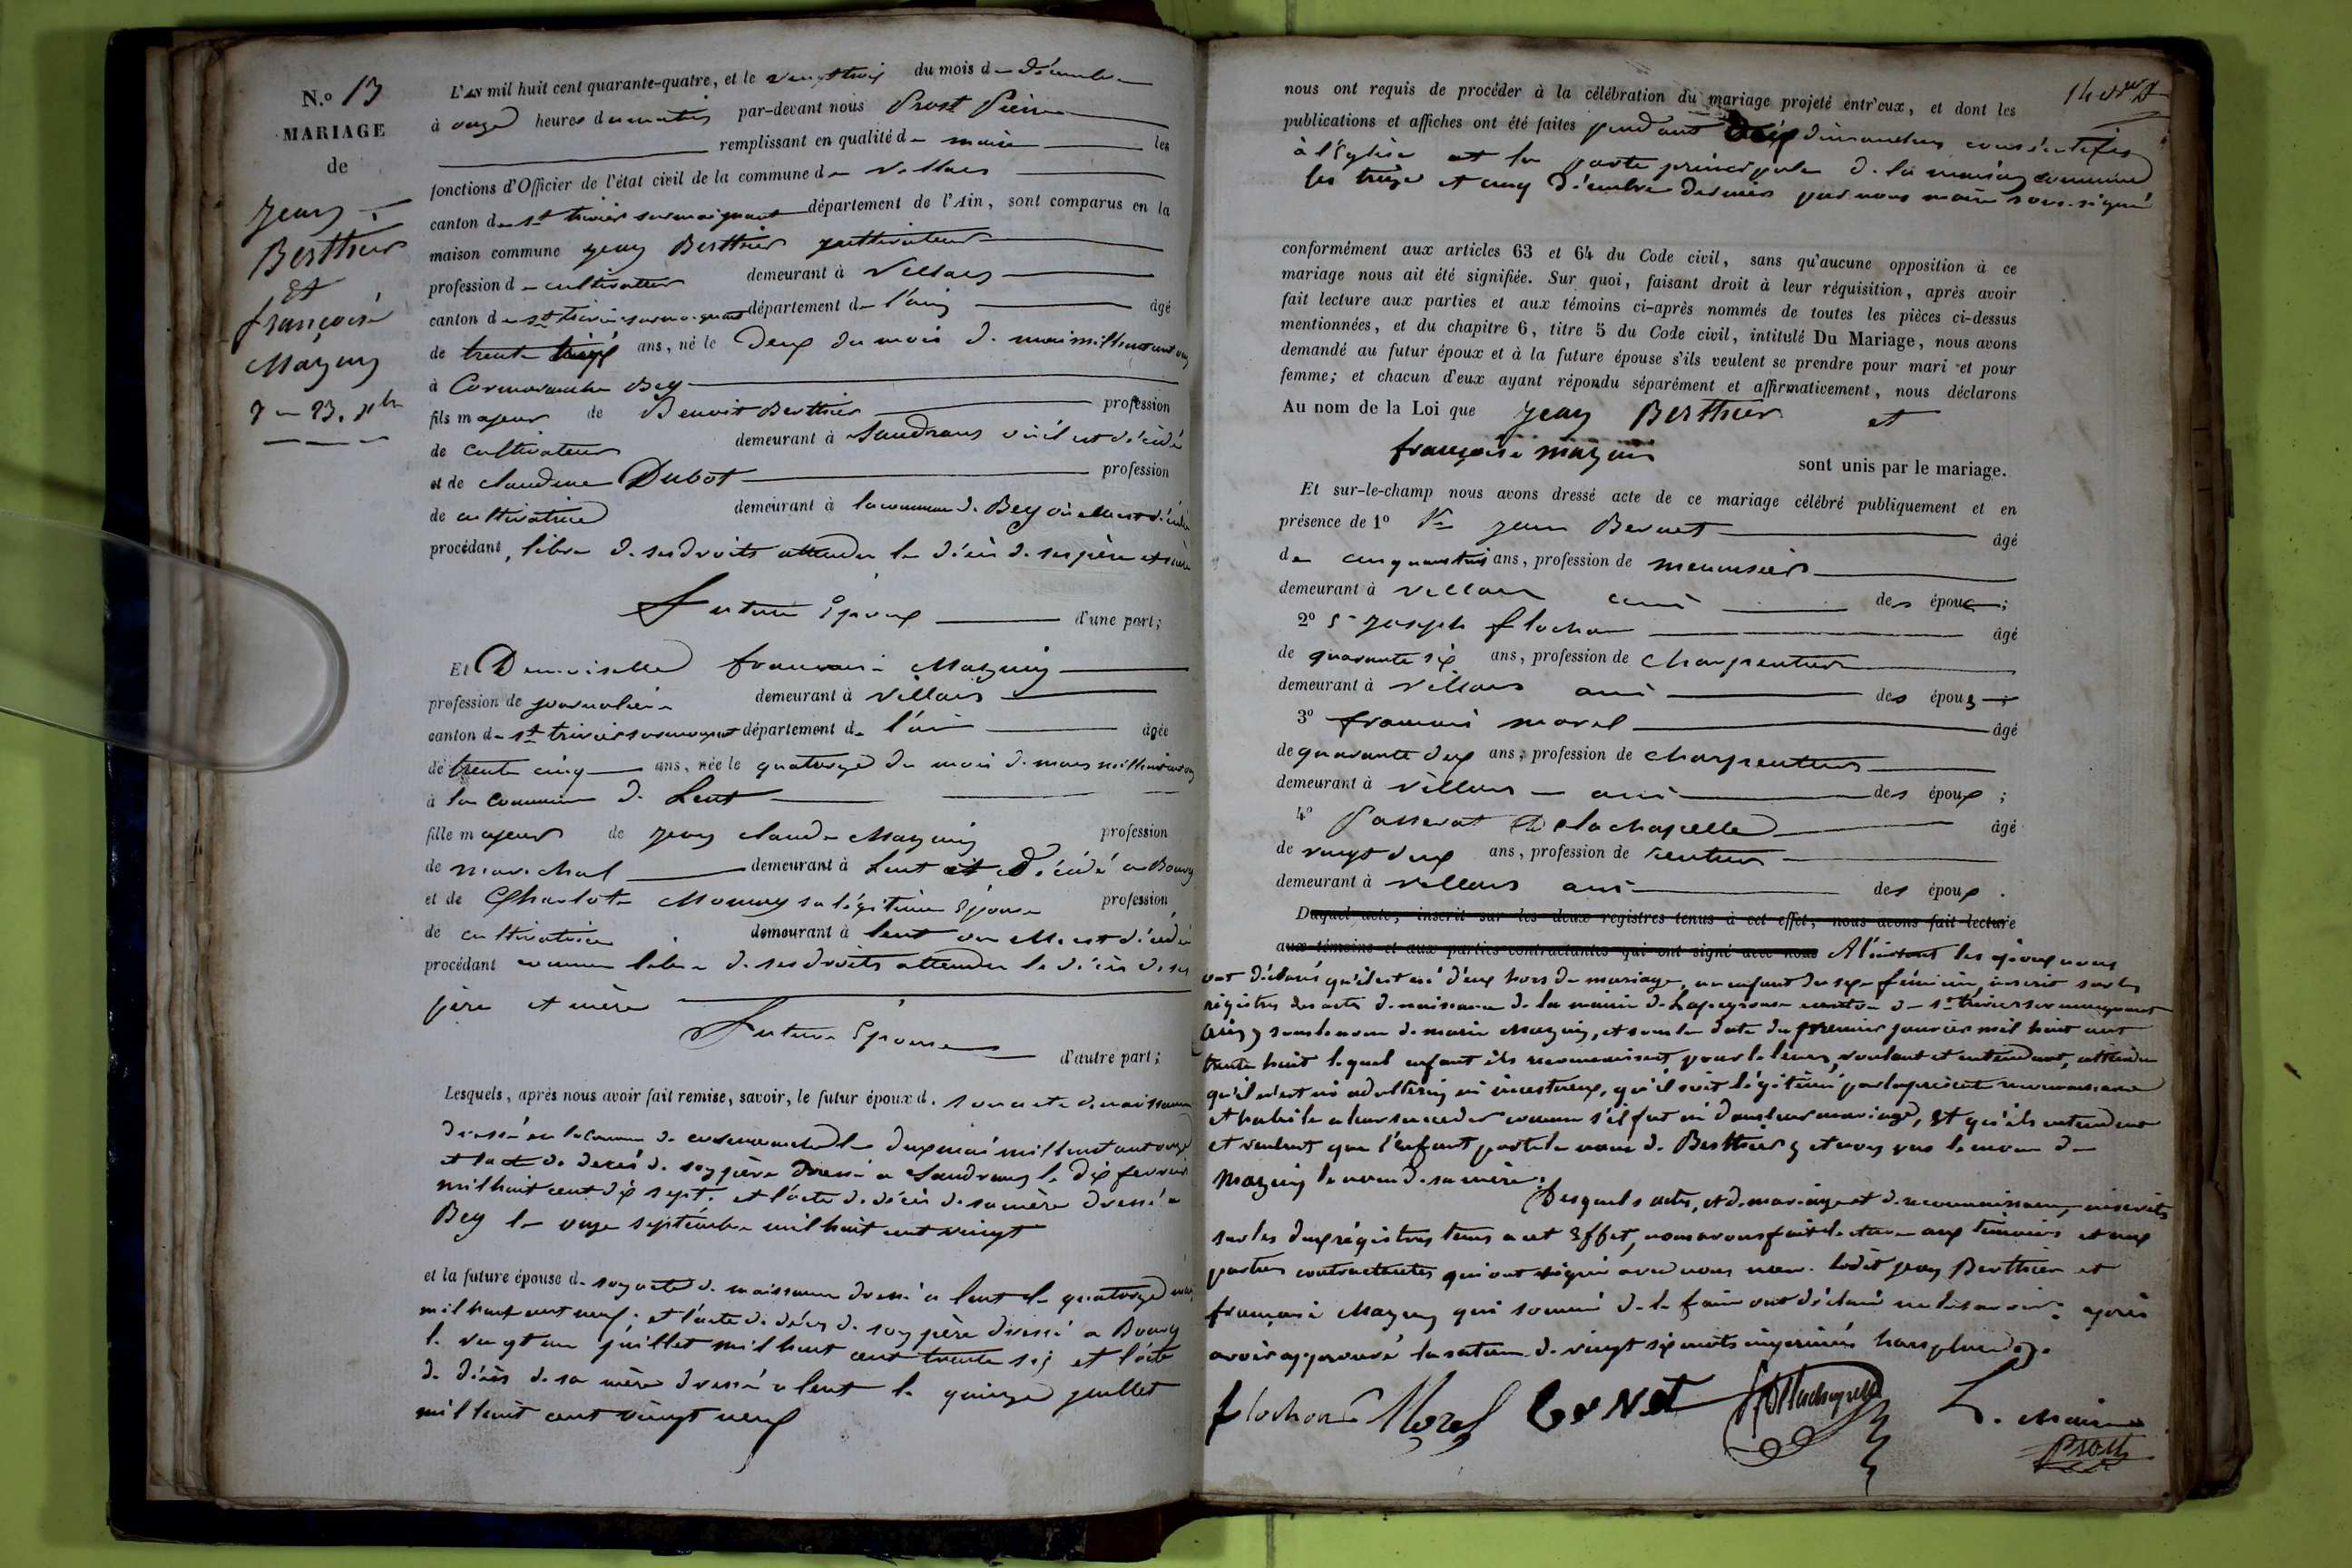 N.o 13
MARIAGE
de
Jean
Berthier
Et
françoise
Mazuy
L'AN mil huit cent quarante-quatre, et le vingt trois du mois de décembre
à onze heures du matin par-devant nous Prost Pierre
remplissant en qualité de maire les
fonctions d'Officier de l'état civil de la commune de Villars
canton de st trivier sur moignant département de l'Ain, sont comparus en la
maison commune Jean Berthier cultivateur
profession de cultivateur demeurant à Villars
canton de st trivier sur moignant département de l'ain âgé
de trente trois ans, né le deux du mois de mai mil huit cent onze
à Cormoranche Bey
fils majeur de Benoit Berthier profession
de cultivateur demeurant à Sandrans où il est décédé
et de claudine Dubot profession
de cultivatrice demeurant à la commune de Bey où elle est décédée
procédant, libre de ses droits attendu le décès de ses père et mère
Futur Epoux d'une part;
Et Demoiselle francoise Mazuy
profession de journalière demeurant à Villars
canton de st trivier sur moignant département de l'ain âgée
de trente cinq ans, née le quatorze du mois de mars mil huit cent
à la commune de Lent
fille majeur de Jean claude Mazuy profession
de marechal demeurant à Lent et décédé a Bourg
et de Charlote sa légitime Epouse profession
de cultivatrice demeurant à lent ou elle est décédée
procédant comme libre de ses droits attendu le décès de ses
père et mère
Future Epouse d'autre part;
Lesquels, après nous avoir fait remise, savoir, le futur époux d. son acte de naissance
dressé en la commune de cormoranche le deux mai mil huit cent onze
et l'acte de decès de son père dressé a Sandrans le dix fevrier
mil huit cent dix sept. et l'acte de décès de sa mère dressé a
Bey le onze septembre mil huit cent vingt
et la future épouse d. son acte de naissance dressé a lent le quatorze mars
mil huit cent neuf; et l'acte de décès de son père dressé a Bourg
le vingt un juillet mil huit cent trente six et l'acte
de décès de sa mère dressé a lent le quinze juillet
mil huit cent vingt neuf
nous ont requis de procéder à la célébration du mariage projeté entr'eux, et dont les
publications et affiches ont été faites pendant deux dimanches consécutifs
à l'Eglise et la porte principale de la maison commune
les et cinq décembre derniers par nous maire sous-signé
conformément aux articles 63 et 64 du Code civil, sans qu'aucune opposition à ce
mariage nous ait été signifiée. Sur quoi, faisant droit à leur réquisition, après avoir
fait lecture aux parties et aux témoins ci-après nommés de toutes les pièces ci-dessus
mentionnées, et du chapitre 6, titre 5 du Code civil, intitulé Du Mariage, nous avons
demandé au futur époux et à la future épouse s'ils veulent se prendre pour mari et pour
femme; et chacun d'eux ayant répondu séparément et affirmativement, nous déclarons
Au nom de la Loi que Jean Berthier et
françoise mazuy sont unis par le mariage.
Et sur-le-champ nous avons dressé acte de ce mariage célébré publiquement et en
présence de 1o Jean Bernet âgé
de cinquante trois ans, profession de menuisier
demeurant à Villars ami des époux;
2o Sr Joseph flochon âgé
de quarante six ans, profession de charpentier
demeurant à Villars ami des époux;
3o francois morel âgé
de quarante deux ans, profession de charpentier
demeurant à Villars ami des époux;
4o Passerat Delachapelle âgé
de vingt deux ans, profession de rentier
demeurant à Villars ami des époux.
Duquel acte, inscrit sur les deux registres tenus à cet effet, nous avons fait lecture
aux témoins et aux parties contractantes qui ont signé avec nous A l'instant les époux nous
ont déclaré qu'il est né d'eux hors de mariage, un enfant du sexe féminin, inscrit sur les
régistres des actes de naissance de la mairie de Lapeyrouse canton de st trivier sur moignant
(ain) sous le nom de marie Mazuy, et sous la date du premier janvier mil huit cent
trente huit lequel enfant ils reconnaissent pour le leur, voulant et entendant, attendu
qu'il n'est ni adultérin ni incestueux, qu'il soit légitimé par la présente reconnaissance
et habile a leur succeder comme s'il fut né dans leur mariage, et qu'ils entendent
et veulent que l'enfant porte le nom de Berthier, et non pas le nom de
Mazuy le nom de sa mère.
Desquels actes, et de mariage et de reconnaissance, inscrits
sur les deux régistres tenus a cet Effet, nous avons fait lecture aux témoins et aux
parties contractantes qui ont signé avec nous non ledit Jean Berthier et
françoise Mazuy qui sommé de le faire ont déclaré ne le savoir. après
avoir approuvé la rature de vingt six mots imprimés
flochon Morel Bernet Delachapelle L. Maire
Prost